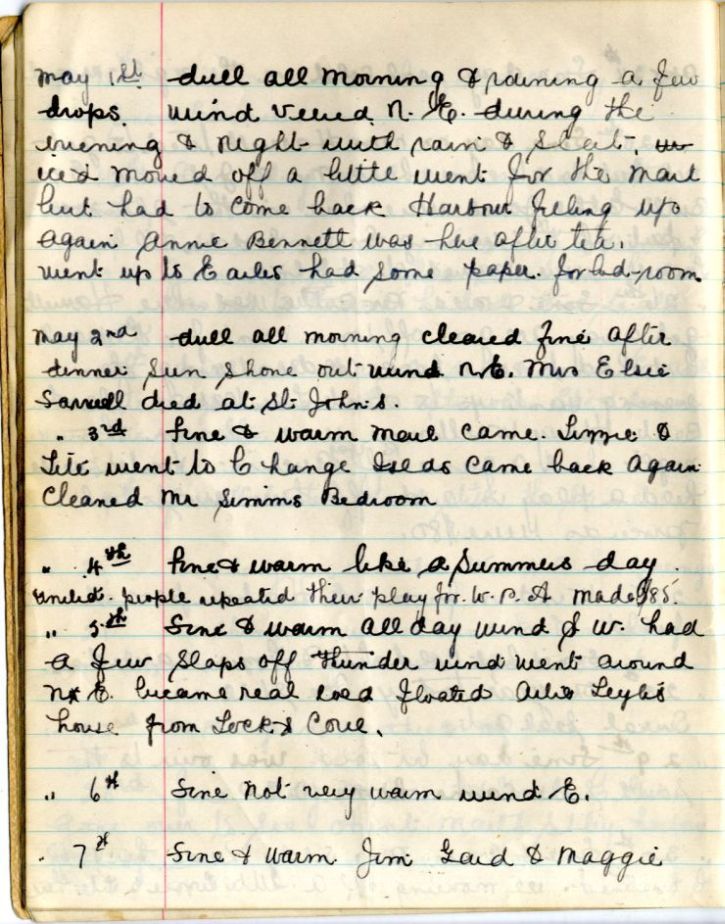 May 1st dull all morning & raining a few
drops. wind veered N. E. during the
evening & night with rain & sleet.
iced moved off a little went for the mail
but had to come back Harbour filling up
again Annie Bennett was here after tea.
went up to Earles had some paper. for bed-room
May 2nd dull all morning cleared fine after
dinner sun shone out wind N.E. Mrs Elsie
died at St. John's.
" 3rd fine & warm mail came. Lizzie &
went to Change Islds came back again
cleaned Mr Simms Bedroom
" 4th fine & warm like a summers day.
United. people repeated their play for. W. P. A made $85.
" 5th fine & warm all day wind S W. had
a few slaps off thunder wind went around
N & E. became real floated
house from Lock's Cove.
" 6th fine not very warm wind E.
" 7th fine & warm Jim & Maggie